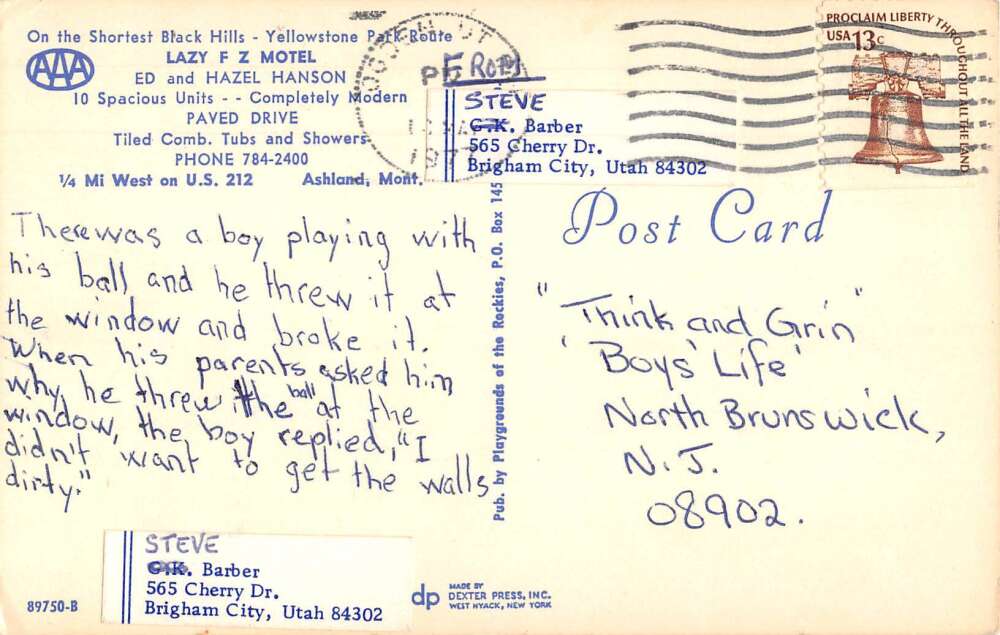 On the Shortest Black Hills - Yellowstone Park Route
AAA
LAZY F Z MOTEL
ED and HAZEL HANSON
10 Spacious Units - - Completely Modern
PAVED DRIVE
Tiled Comb. Tubs and Showers
PHONE 784-2400
1/4 Mi West on U.S. 212 Ashland, Mont.
FROM
STEVE
G.K. Barber
565 Cherry Dr.
Brigham City, Utah 84302
PROCLAIM LIBERTY THROUGHOUT ALL THE LAND
USA 13c
Post Card
There was a boy playing with
his ball and he threw it at
the window and broke it.
When his parents asked him
why he threw the ball at the
window, the boy replied, "I
didn't want to get the walls
dirty."
"Think and Grin"
'Boys' Life'
North Brunswick,
N.J.
08902.
Pub. by Playgrounds of the Rockies, P.O. Box 145
STEVE
G.K. Barber
565 Cherry Dr.
Brigham City, Utah 84302
89750-B
dp
MADE BY
DEXTER PRESS, INC.
WEST NYACK, NEW YORK